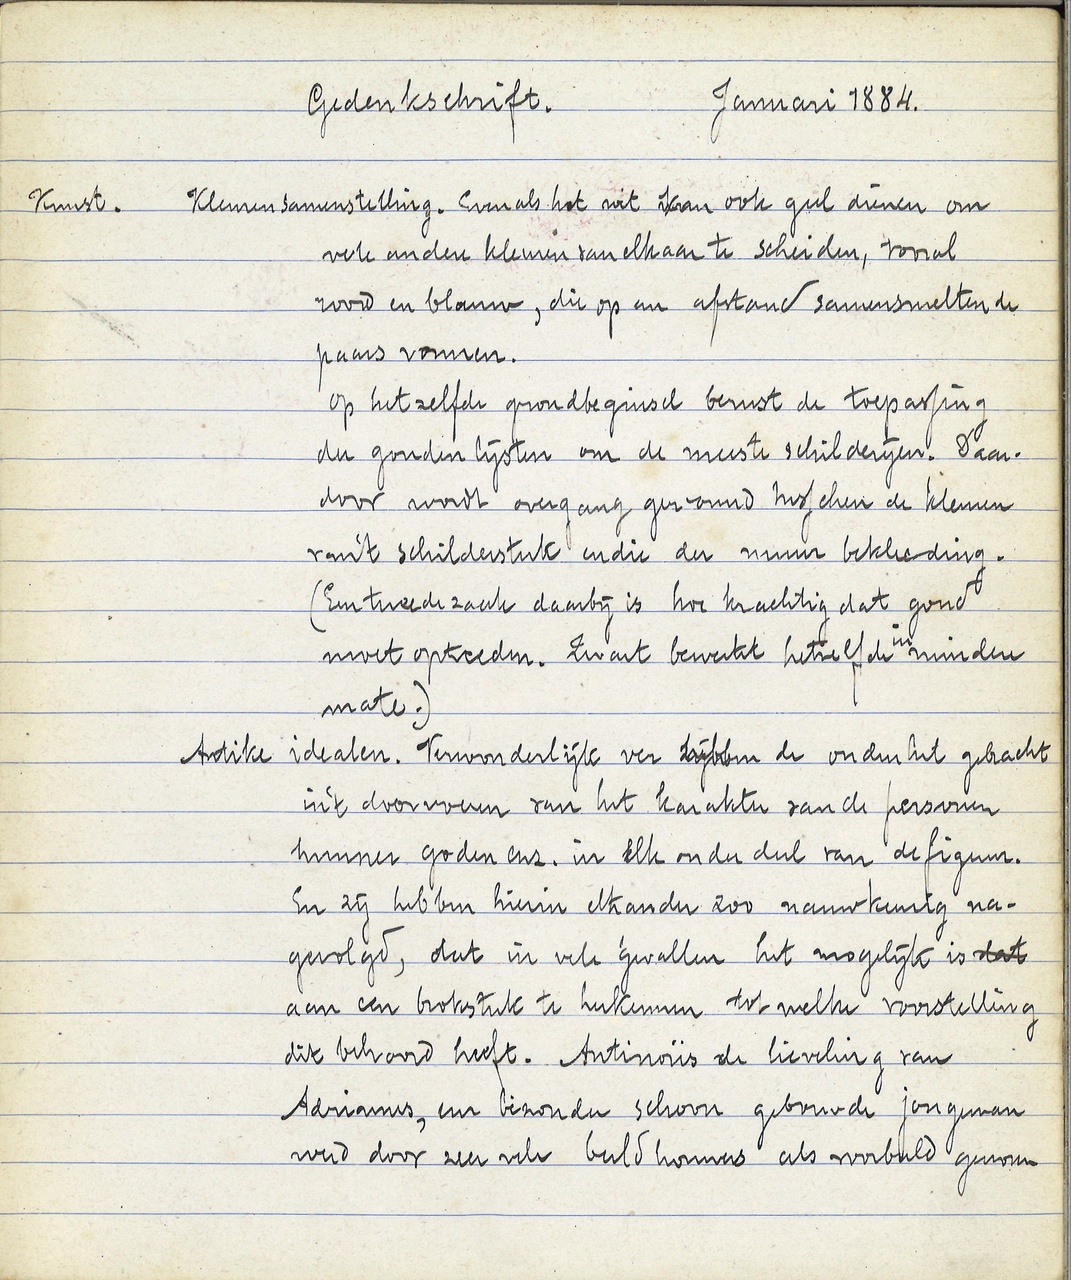 Gedenkschrift. Januari 1884.
Kunst. Kleurensamenstelling. Evenals het wit kan ook geel dienen om
vele andere kleuren van elkaar te scheiden, vooral
rood en blauw, die op een afstand samensmeltende
paars vormen.
Op hetzelfde grondbeginsel berust de toepassing
der gouden lijsten om de meeste schilderijen. Daar-
door wordt overgang gevormd tusschen de kleuren
van't schilderstuk en die der muur bekleeding.
(Een tweede zaak daarbij is hoe krachtig dat goud
moet optreden. Zwart bewerkt hetzelfde in mindere
mate.)
Antike idealen. Verwonderlijk ver hebben de ouden het gebracht
in't doorvoeren van het karakter van de personen
hunner goden enz. in elk onderdeel van de figuur.
En zij hebben hierin elkander zoo nauwkeurig na-
gevolgd, dat in vele gevallen het mogelijk is dat
aan een brokstuk te herkennen tot welke voorstelling
dit behoord heeft. Antinoüs de lieveling van
Adrianus, een bizonder schoon gebouwde jongeman
werd door zeer vele beeldhouwers als voorbeeld genomen